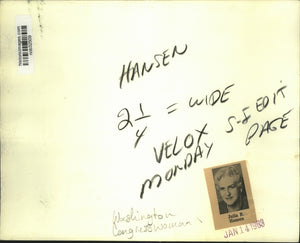 HANSEN
2 1/4 = WIDE
VELOX S-S EDIT
MONDAY PAGE
Washington
Congresswoman
Julia B.
Hansen
JAN 14 1963